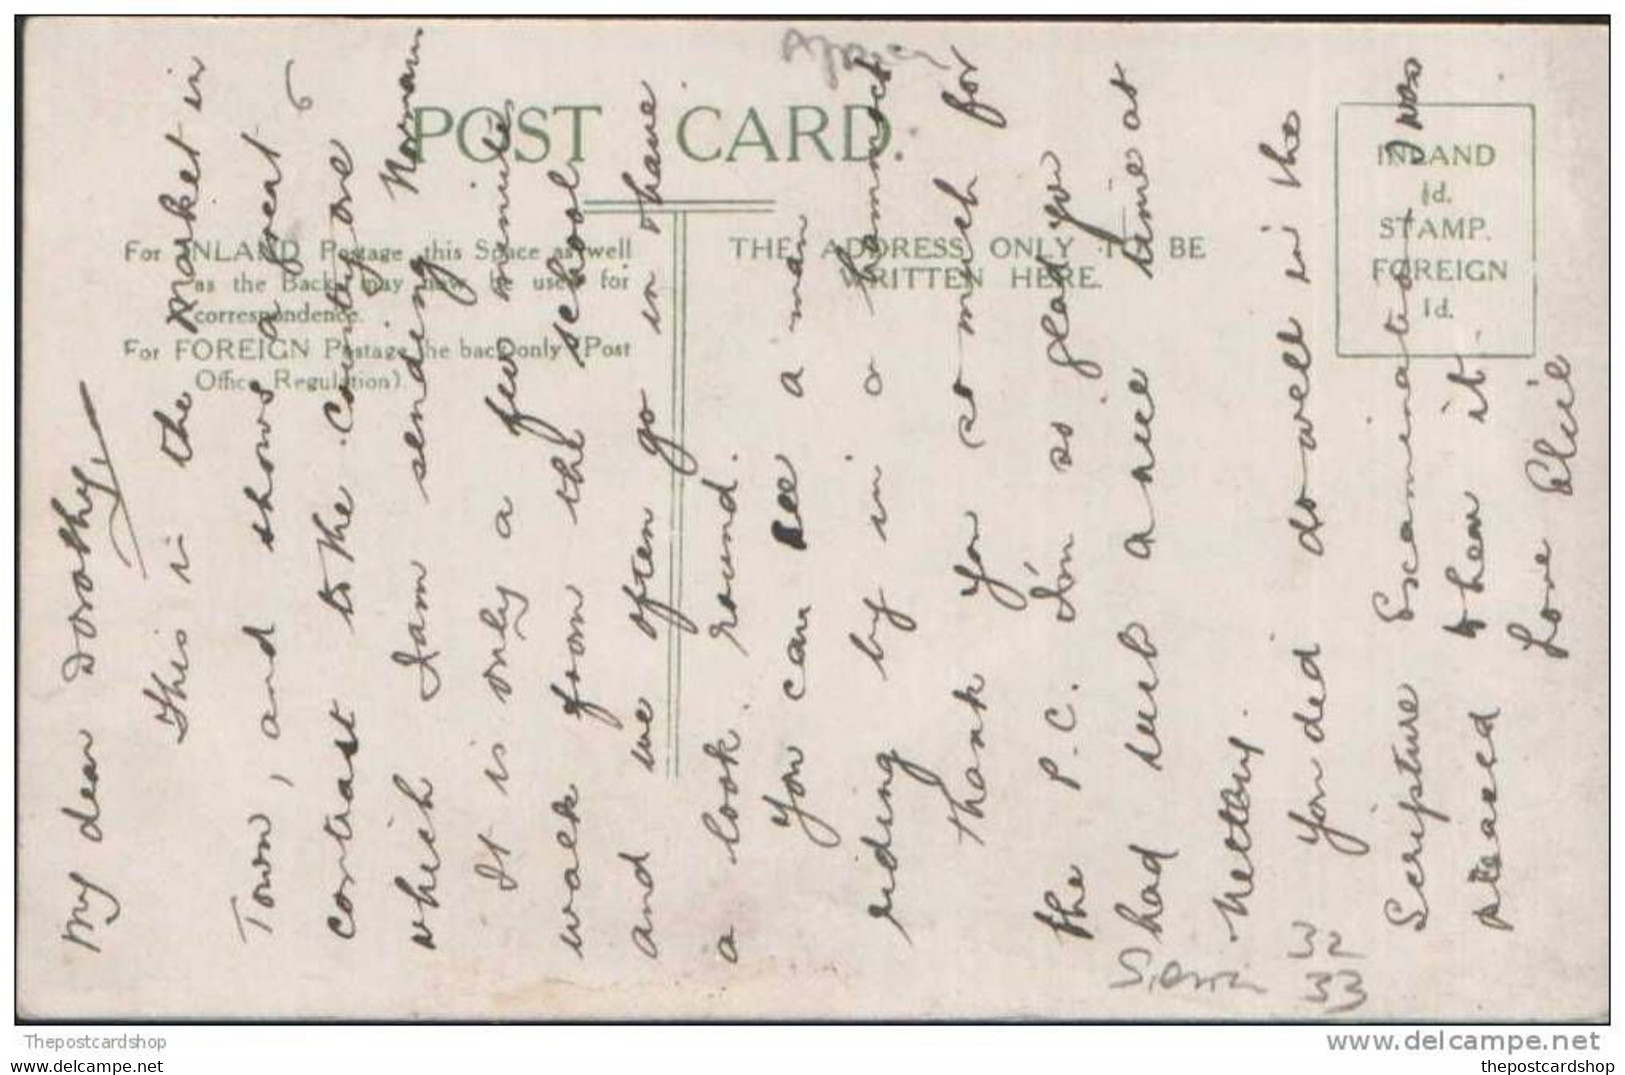 My dear Dorothy,
This is the Market in
Town, and shows a great
contrast to the Country one
which I am sending Norman
It is only a few minutes
walk from the school
and we often go in & have
a look round.
You can see a man
riding by in a hammock
Thank you so much for
the P.C. I'm so glad you
had such a nice time at
You did do well in the
Scripture Examination I was
pleased to hear it
Love Elsie
POST CARD.
For INLAND Postage this Space as well
as the Back may now be used for
correspondence.
For FOREIGN Postage the back only (Post
Office Regulation).
THE ADDRESS ONLY TO BE
WRITTEN HERE.
INLAND
½d.
STAMP.
FOREIGN
1d.
Thepostcardshop
www.delcampe.net
thepostcardshop